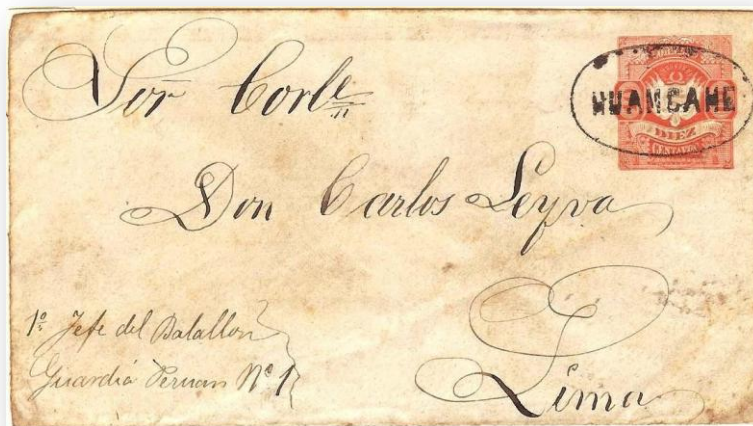 HUANCANE
DIEZ
CENTAVOS
Sor Corl
Don Carlos Leyva
Lima
1º Jefe del Batallon
Guardia Peruan Nº 1